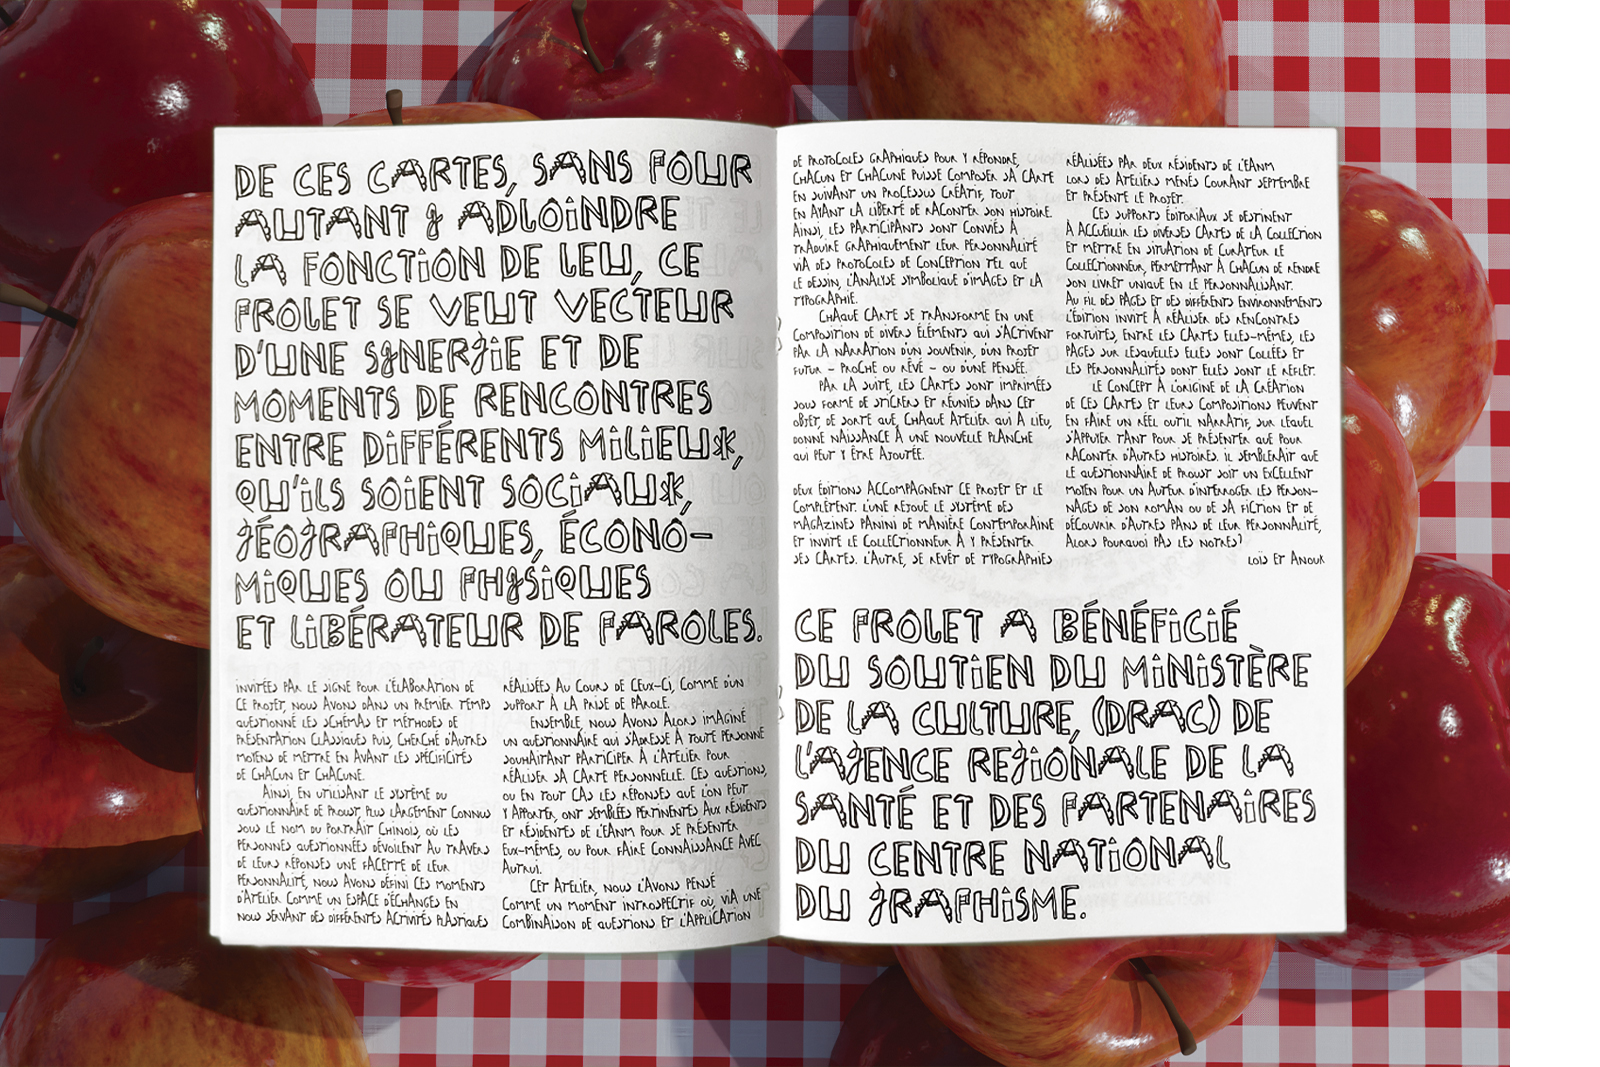 DE CES CARTES, SANS POUR
AUTANT Y ADJOINDRE
LA FONCTION DE JEU, CE
PROJET SE VEUT VECTEUR
D'UNE SYNERGIE ET DE
MOMENTS DE RENCONTRES
ENTRE DIFFÉRENTS MILIEUX,
QU'ILS SOIENT SOCIAUX,
GÉOGRAPHIQUES, ÉCONO-
MIQUES OU PHYSIQUES
ET LIBÉRATEUR DE PAROLES.
INVITÉES PAR LE SIGNE POUR L'ÉLABORATION DE
CE PROJET, NOUS AVONS DANS UN PREMIER TEMPS
QUESTIONNÉ LES SCHÉMAS ET MÉTHODES DE
PRÉSENTATION CLASSIQUES PUIS, CHERCHÉ D'AUTRES
MOYENS DE METTRE EN AVANT LES SPÉCIFICITÉS
DE CHACUN ET CHACUNE.
AINSI, EN UTILISANT LE SYSTÈME DU
QUESTIONNAIRE DE PROUST, PLUS LARGEMENT CONNUS
SOUS LE NOM DU PORTRAIT CHINOIS, OÙ LES
PERSONNES QUESTIONNÉES DÉVOILENT AU TRAVERS
DE LEURS RÉPONSES UNE FACETTE DE LEUR
PERSONNALITÉ, NOUS AVONS DÉFINI CES MOMENTS
D'ATELIER COMME UN ESPACE D'ÉCHANGES EN
NOUS SERVANT DES DIFFÉRENTES ACTIVITÉS PLASTIQUES
RÉALISÉES AU COURS DE CEUX-CI, COMME D'UN
SUPPORT À LA PRISE DE PAROLE.
ENSEMBLE, NOUS AVONS ALORS IMAGINÉ
UN QUESTIONNAIRE QUI S'ADRESSE À TOUTE PERSONNE
SOUHAITANT PARTICIPER À L'ATELIER POUR
RÉALISER SA CARTE PERSONNELLE. CES QUESTIONS,
OU EN TOUT CAS LES RÉPONSES QUE L'ON PEUT
Y APPORTER, ONT SEMBLÉES PERTINENTES AUX RÉSIDENTS
ET RÉSIDENTES DE L'EANM POUR SE PRÉSENTER
EUX-MÊMES, OU POUR FAIRE CONNAISSANCE AVEC
AUTRUI.
CET ATELIER, NOUS L'AVONS PENSÉ
COMME UN MOMENT INTROSPECTIF OÙ, VIA UNE
COMBINAISON DE QUESTIONS ET L'APPLICATION
DE PROTOCOLES GRAPHIQUES POUR Y RÉPONDRE,
CHACUN ET CHACUNE PUISSE COMPOSER SA CARTE
EN SUIVANT UN PROCESSUS CRÉATIF, TOUT
EN AYANT LA LIBERTÉ DE RACONTER SON HISTOIRE.
AINSI, LES PARTICIPANTS SONT CONVIÉS À
TRADUIRE GRAPHIQUEMENT LEUR PERSONNALITÉ
VIA DES PROTOCOLES DE CONCEPTION TEL QUE
LE DESSIN, L'ANALYSE SYMBOLIQUE D'IMAGES ET LA
TYPOGRAPHIE.
CHAQUE CARTE SE TRANSFORME EN UNE
COMPOSITION DE DIVERS ÉLÉMENTS QUI S'ACTIVENT
PAR LA NARRATION D'UN SOUVENIR, D'UN PROJET
FUTUR – PROCHE OU RÊVÉ – OU D'UNE PENSÉE.
PAR LA SUITE, LES CARTES SONT IMPRIMÉES
SOUS FORME DE STICKERS ET RÉUNIES DANS CET
OBJET, DE SORTE QUE, CHAQUE ATELIER QUI A LIEU,
DONNE NAISSANCE À UNE NOUVELLE PLANCHE
QUI PEUT Y ÊTRE AJOUTÉE.
DEUX ÉDITIONS ACCOMPAGNENT CE PROJET ET LE
COMPLÈTENT. L'UNE REJOUE LE SYSTÈME DES
MAGAZINES PANINI DE MANIÈRE CONTEMPORAINE
ET INVITE LE COLLECTIONNEUR À Y PRÉSENTER
SES CARTES. L'AUTRE, SE REVÊT DE TYPOGRAPHIES
RÉALISÉES PAR DEUX RÉSIDENTS DE L'EANM
LORS DES ATELIERS MENÉS COURANT SEPTEMBRE
ET PRÉSENTE LE PROJET.
CES SUPPORTS ÉDITORIAUX SE DESTINENT
À ACCUEILLIR LES DIVERSES CARTES DE LA COLLECTION
ET METTRE EN SITUATION DE CURATEUR LE
COLLECTIONNEUR, PERMETTANT À CHACUN DE RENDRE
SON LIVRET UNIQUE EN LE PERSONNALISANT.
AU FIL DES PAGES ET DES DIFFÉRENTS ENVIRONNEMENTS
L'ÉDITION INVITE À RÉALISER DES RENCONTRES
FORTUITES, ENTRE LES CARTES ELLES-MÊMES, LES
PAGES SUR LESQUELLES ELLES SONT COLLÉES ET
LES PERSONNALITÉS DONT ELLES SONT LE REFLET.
LE CONCEPT À L'ORIGINE DE LA CRÉATION
DE CES CARTES ET LEURS COMPOSITIONS PEUVENT
EN FAIRE UN RÉEL OUTIL NARRATIF, SUR LEQUEL
S'APPUYER TANT POUR SE PRÉSENTER QUE POUR
RACONTER D'AUTRES HISTOIRES. IL SEMBLERAIT QUE
LE QUESTIONNAIRE DE PROUST SOIT UN EXCELLENT
MOYEN POUR UN AUTEUR D'INTERROGER LES PERSON-
NAGES DE SON ROMAN OU DE SA FICTION ET DE
DÉCOUVRIR D'AUTRES PANS DE LEUR PERSONNALITÉ,
ALORS POURQUOI PAS LES NOTRES?
LOÏS ET ANOUK
CE PROJET A BÉNÉFICIÉ
DU SOUTIEN DU MINISTÈRE
DE LA CULTURE, (DRAC) DE
L'AGENCE REGIONALE DE LA
SANTÉ ET DES PARTENAIRES
DU CENTRE NATIONAL
DU GRAPHISME.